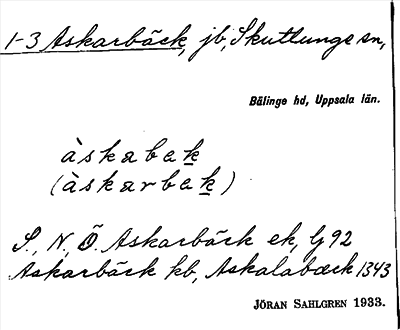 1-3 Askarbäck, jb, Skuttunge sn,
Bälinge hd, Uppsala län.
àskabak
(àskarbak)
S., N., Ö. Askarbäck ek, Lj 92
Askarbäck kb, Askalabæck 1343
JÖRAN SAHLGREN 1933.